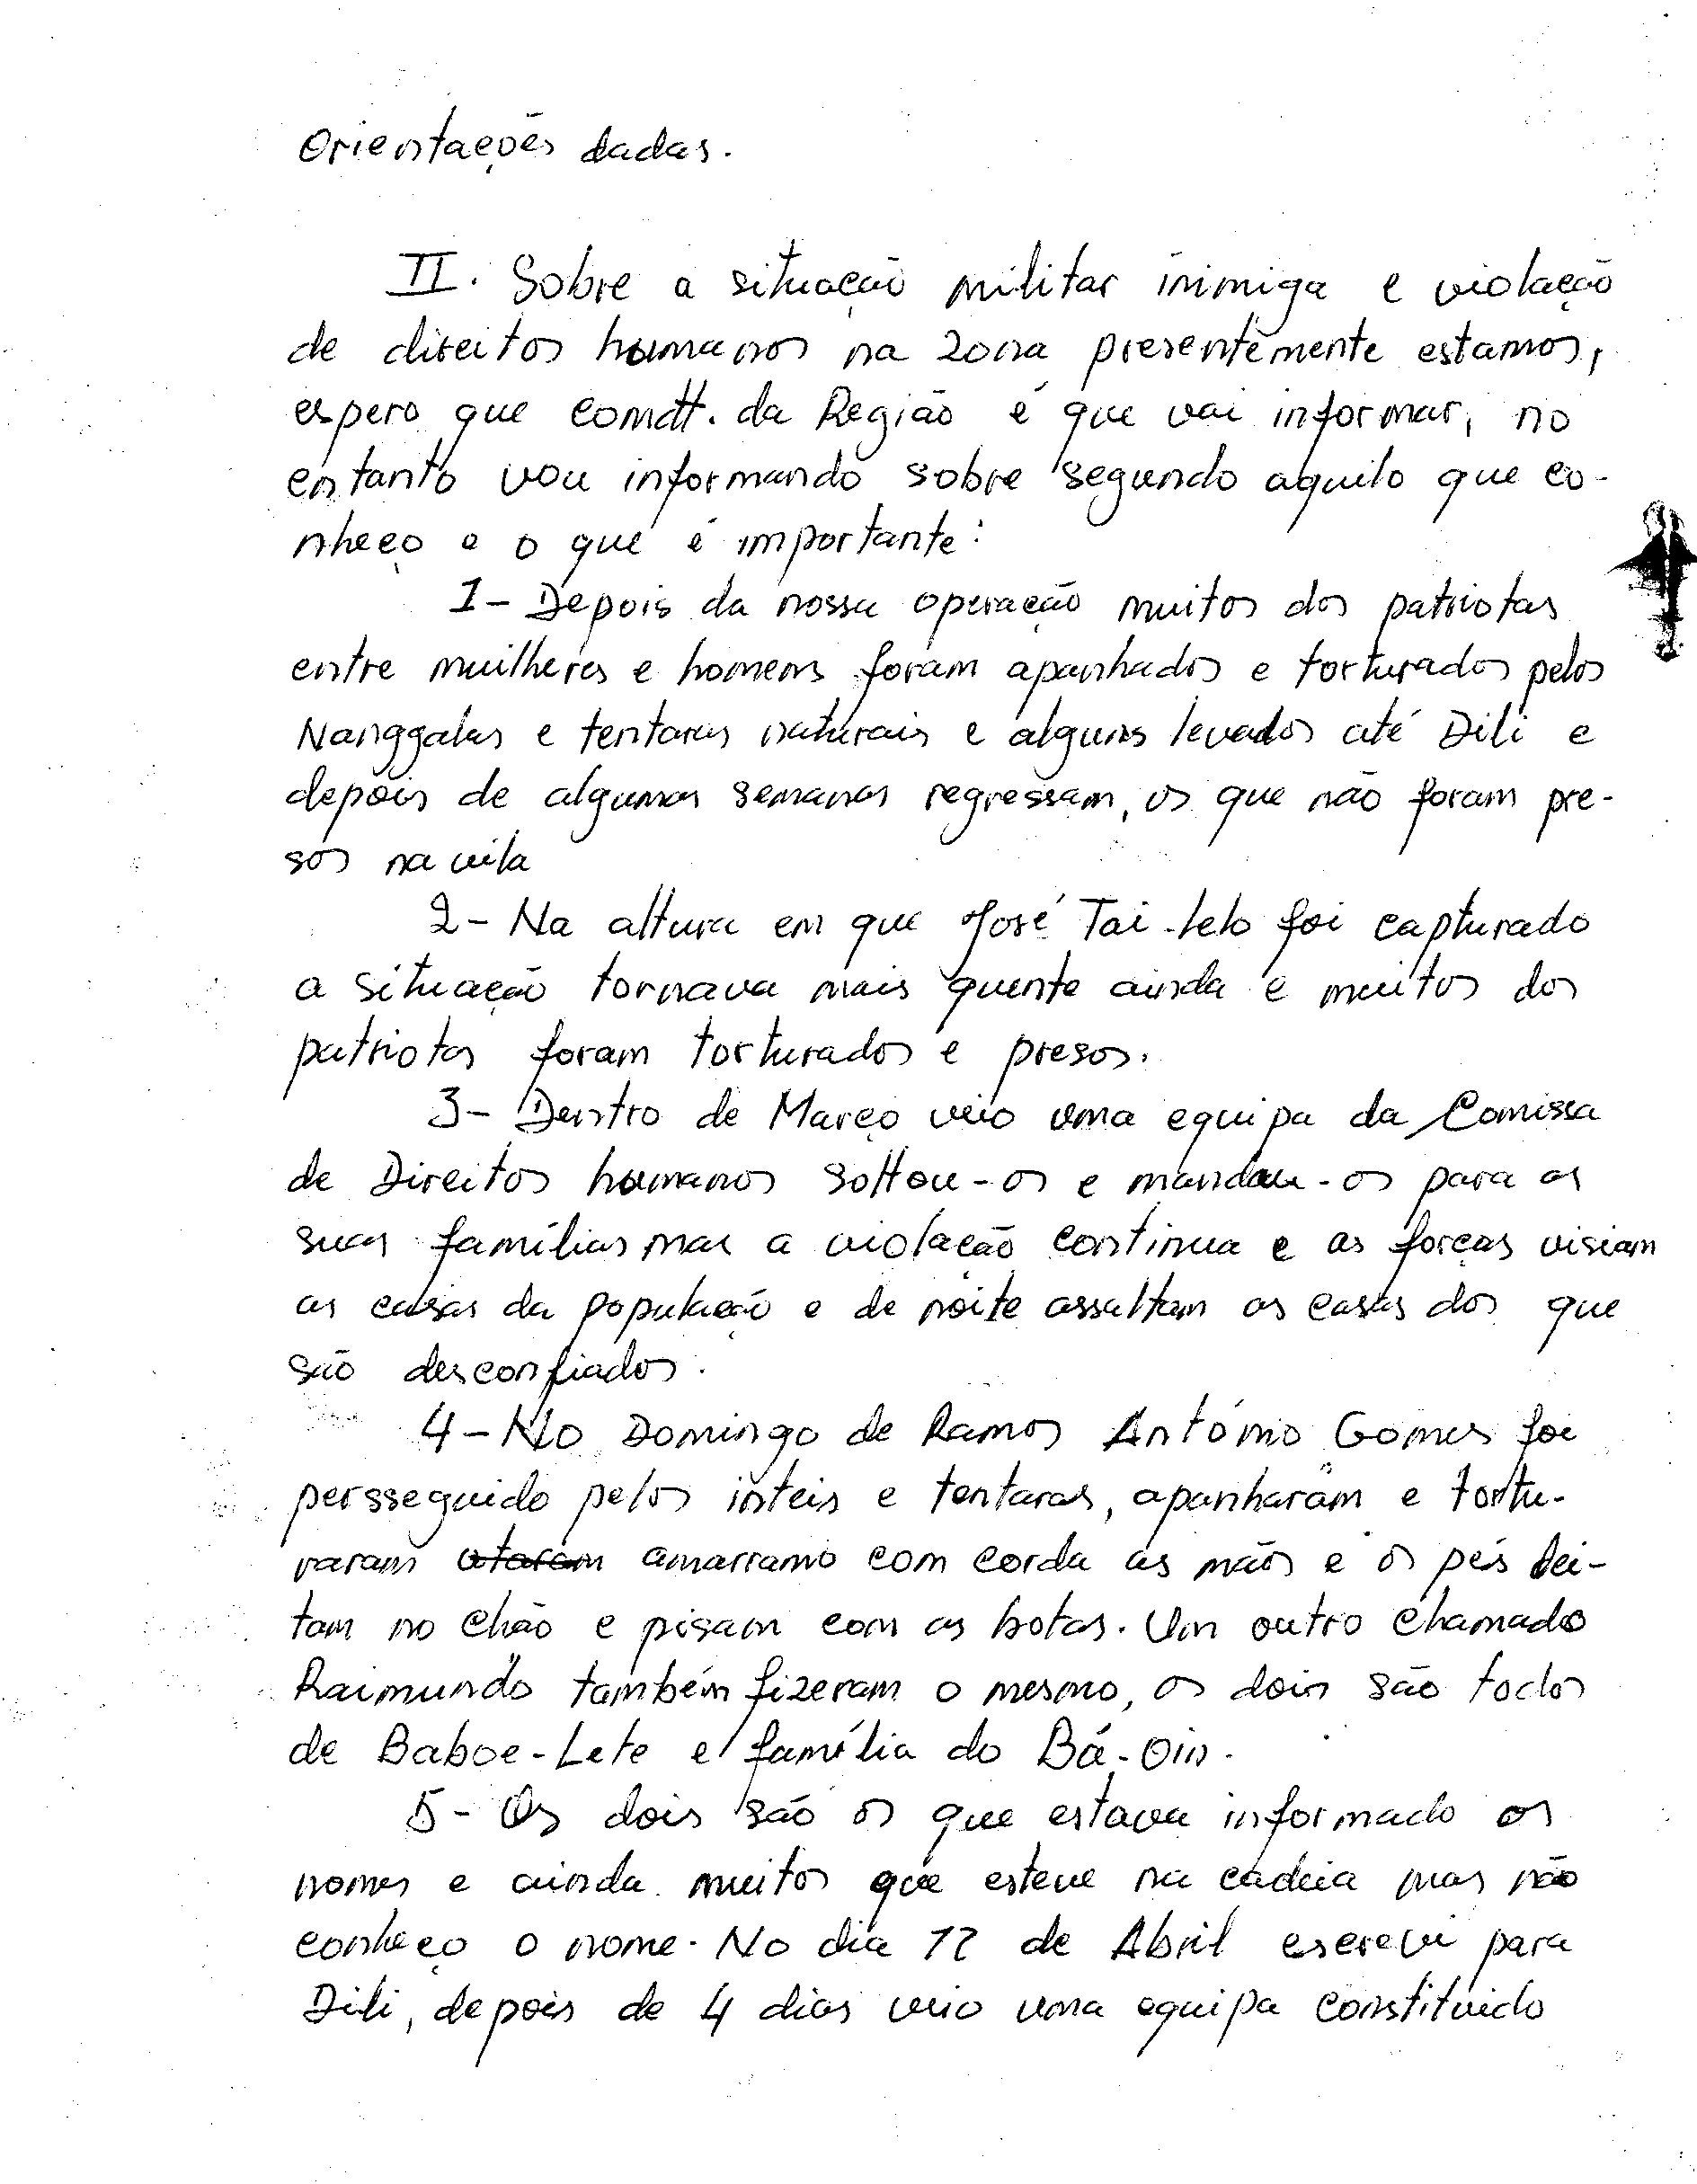 Orientações dadas.
II. Sobre a situação militar inimiga e violação
de direitos humanos na zona presentemente estamos,
espero que comdt. da Região é que vai informar, no
entanto vou informando sobre segundo aquilo que co-
nheço e o que é importante:
1- Depois da nossa operação muitos dos patriotas
entre muilheres e homens foram apanhados e torturados pelos
Nanggalas e tentaras naturais e alguns levados até Dili e
depois de algumas semanas regressam, os que não foram pre-
sos na vila
2- Na altura em que José Tai-lelo foi capturado
a situação tornava mais quente ainda e muitos dos
patriotas foram torturados e presos.
3- Dentro de Março veio uma equipa da Comissa
de Direitos humanos soltou-os e mandou-os para as
suas famílias mas a violação continua e as forças visiam
as casas da população e de noite assaltam as casas dos que
são desconfiados.
4- No Domingo de Ramos António Gomes foi
persseguido pelos inteis e tentaras, apanharam e tortu-
raram ataram amarramo com corda as mãos e os pés dei-
tam no chão e pisam com as botas. Um outro chamado
Raimundo também fizeram o mesmo, os dois são todos
de Baboe-Lete e família do Bá-Oin.
5- Os dois são os que estava informado os
nomes e ainda muitos que esteve na cadeia mas não
conheço o nome. No dia 12 de Abril escrevi para
Dili, depois de 4 dias veio uma equipa constituido